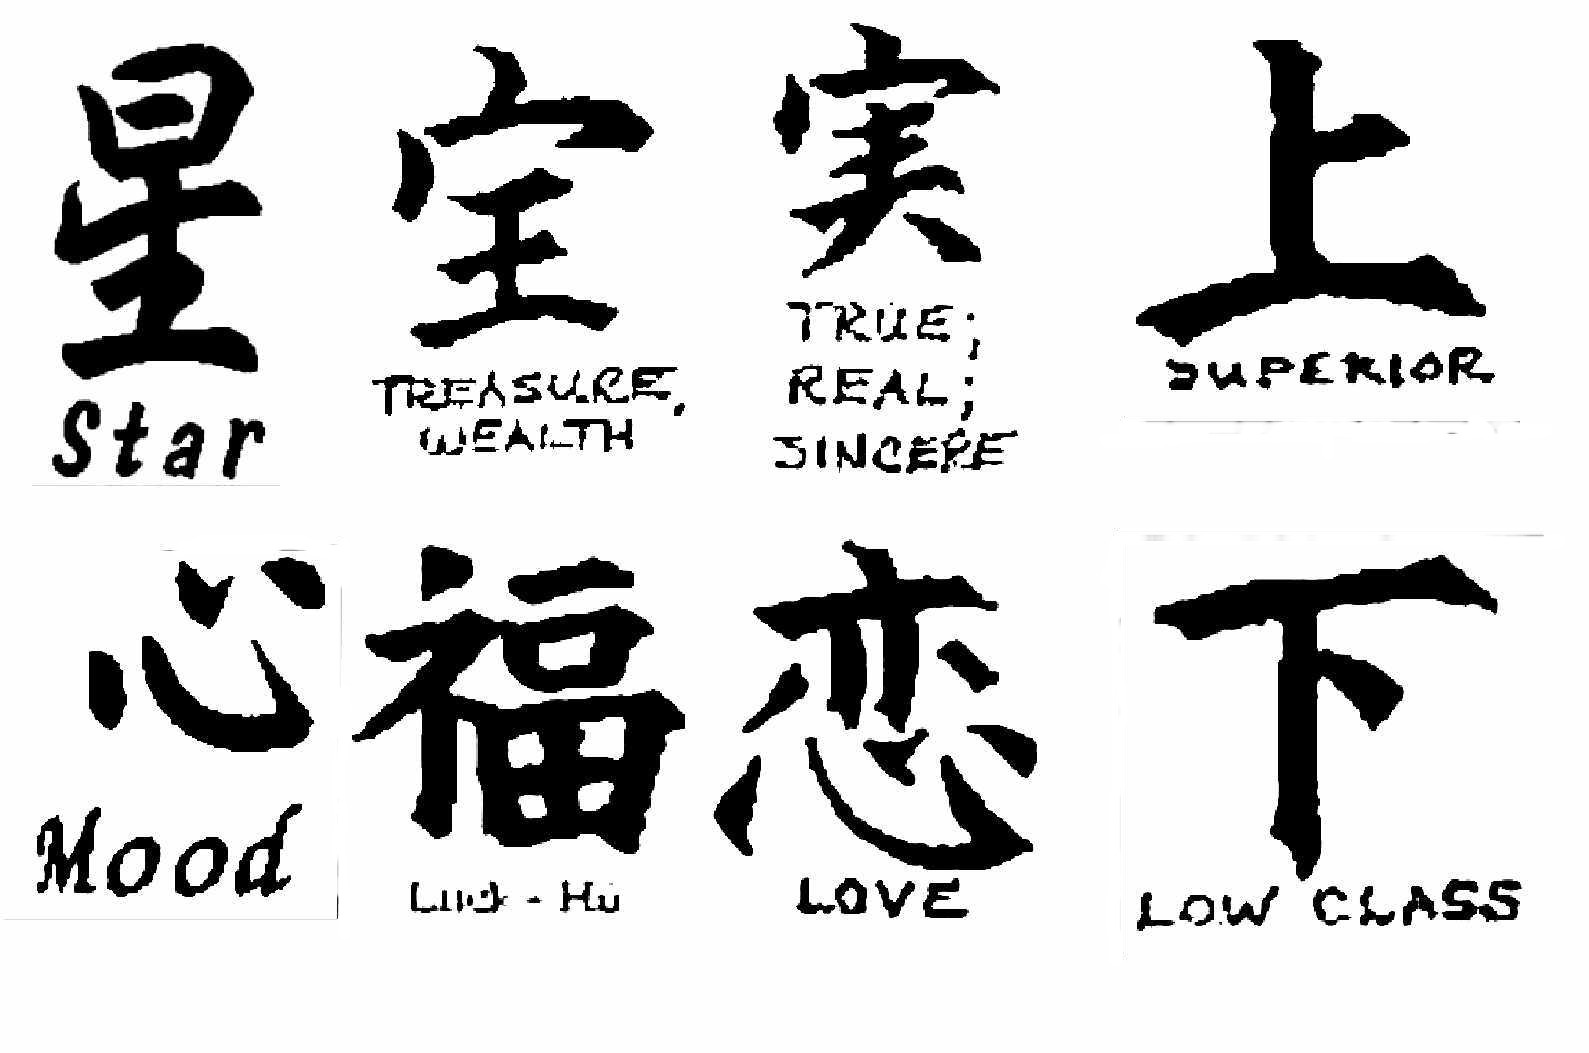 星 宝 実 上
Star
TREASURE,
WEALTH
TRUE;
REAL;
SINCERE
SUPERIOR
心 福 恋 下
Mood
Luck - Hu
LOVE
LOW CLASS